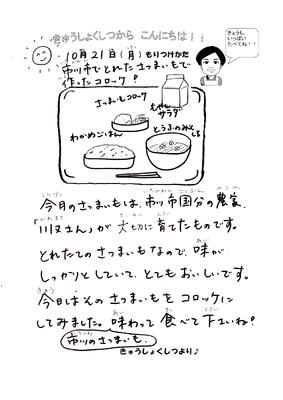 きゅうしょくしつから こんにちは!!
きょうも、
いっぱい
たべてね!!
10月21日(月)もりつけかた
市川市でとれたさつまいもで
作ったコロッケ!
さつまいもコロッケ
もやし
サラダ
わかめごはん
とうふのみそしる
今月のさつまいもは、市川市国分の農家、
さん」が大切に育てたものです。
とれたてのさつまいもなので、味が
しっかりとしていて、とてもおいしいです。
今日はそのさつまいもをコロッケに
してみました。味わって食べて下さいね!
市川のさつまいも.
きゅうしょくしつより♪